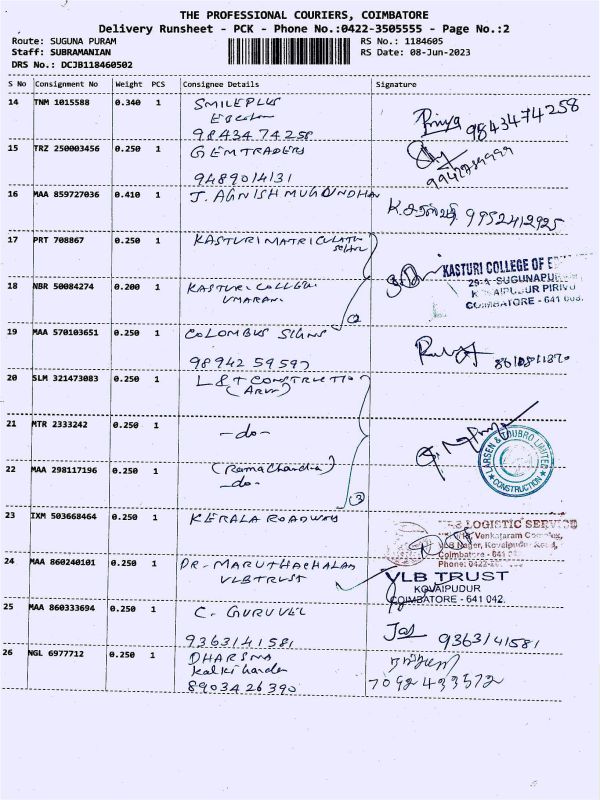 THE PROFESSIONAL COURIERS, COIMBATORE
Delivery Runsheet - PCK - Phone No.:0422-3505555 - Page No.:2
Route: SUGUNA PURAM RS No.: 1184605
Staff: SUBRAMANIAN RS Date: 08-Jun-2023
DRS No.: DCJB118460502
S No Consignment No Weight PCS Consignee Details Signature
14 TNM 1015588 0.340 1 SMILEPLUS
9843474258 Priya 9843474258
15 TRZ 250003456 0.250 1 GEMTRADERS
9489014131
16 MAA 859727036 0.410 1 J. AGNISH MUGUNDHAN
9952412925
17 PRT 708867 0.250 1 KASTURI MATRICULATN
18 NBR 50084274 0.200 1 KASTURI COLLEGE
UMARANI
②
KASTURI COLLEGE OF
29-A SUGUNAPU
PIRIVU
COIMBATORE - 641 008.
19 MAA 570103651 0.250 1 COLOMBUS SIGNS
98942 59597
20 SLM 321473083 0.250 1 L&T CONSTRUCTIO
(ARUN)
21 MTR 2333242 0.250 1 -do-
22 MAA 298117196 0.250 1 (Ramachandra)
-do-
③
LARSEN & TOUBRO LIMITED
CONSTRUCTION
23 IXM 503668464 0.250 1 KERALA ROADWAYS
LOGISTIC SERVICE
Venkataram Complex,
VLB Nagar, Kovaipudur Road,
Coimbatore - 641
Phone: 0422-2
24 MAA 860240101 0.250 1 DR. MARUTHACHALAM
VLB TRUST
VLB TRUST
KOVAIPUDUR
COIMBATORE - 641 042.
25 MAA 860333694 0.250 1 C. GURUVEL
9363141581 9363141581
26 NGL 6977712 0.250 1 DHARSNA
8903426390 7092433572